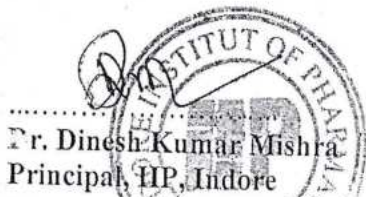 E INSTITUT OF PHARMA
IIP
Dr. Dinesh Kumar Mishra
Principal, IIP, Indore